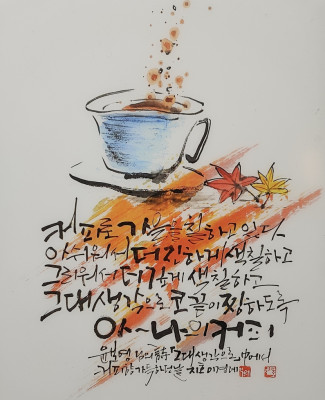 커피로 가을을 칠하고 있다
아쉬워서 더 진하게 색칠하고
그리워서 더 깊게 색칠하고
그대 생각으로 코끝이 찡하도록
아~ 나의 커피
윤보영 님의 "그대 생각으로" 중에서
커피향 가득한 날